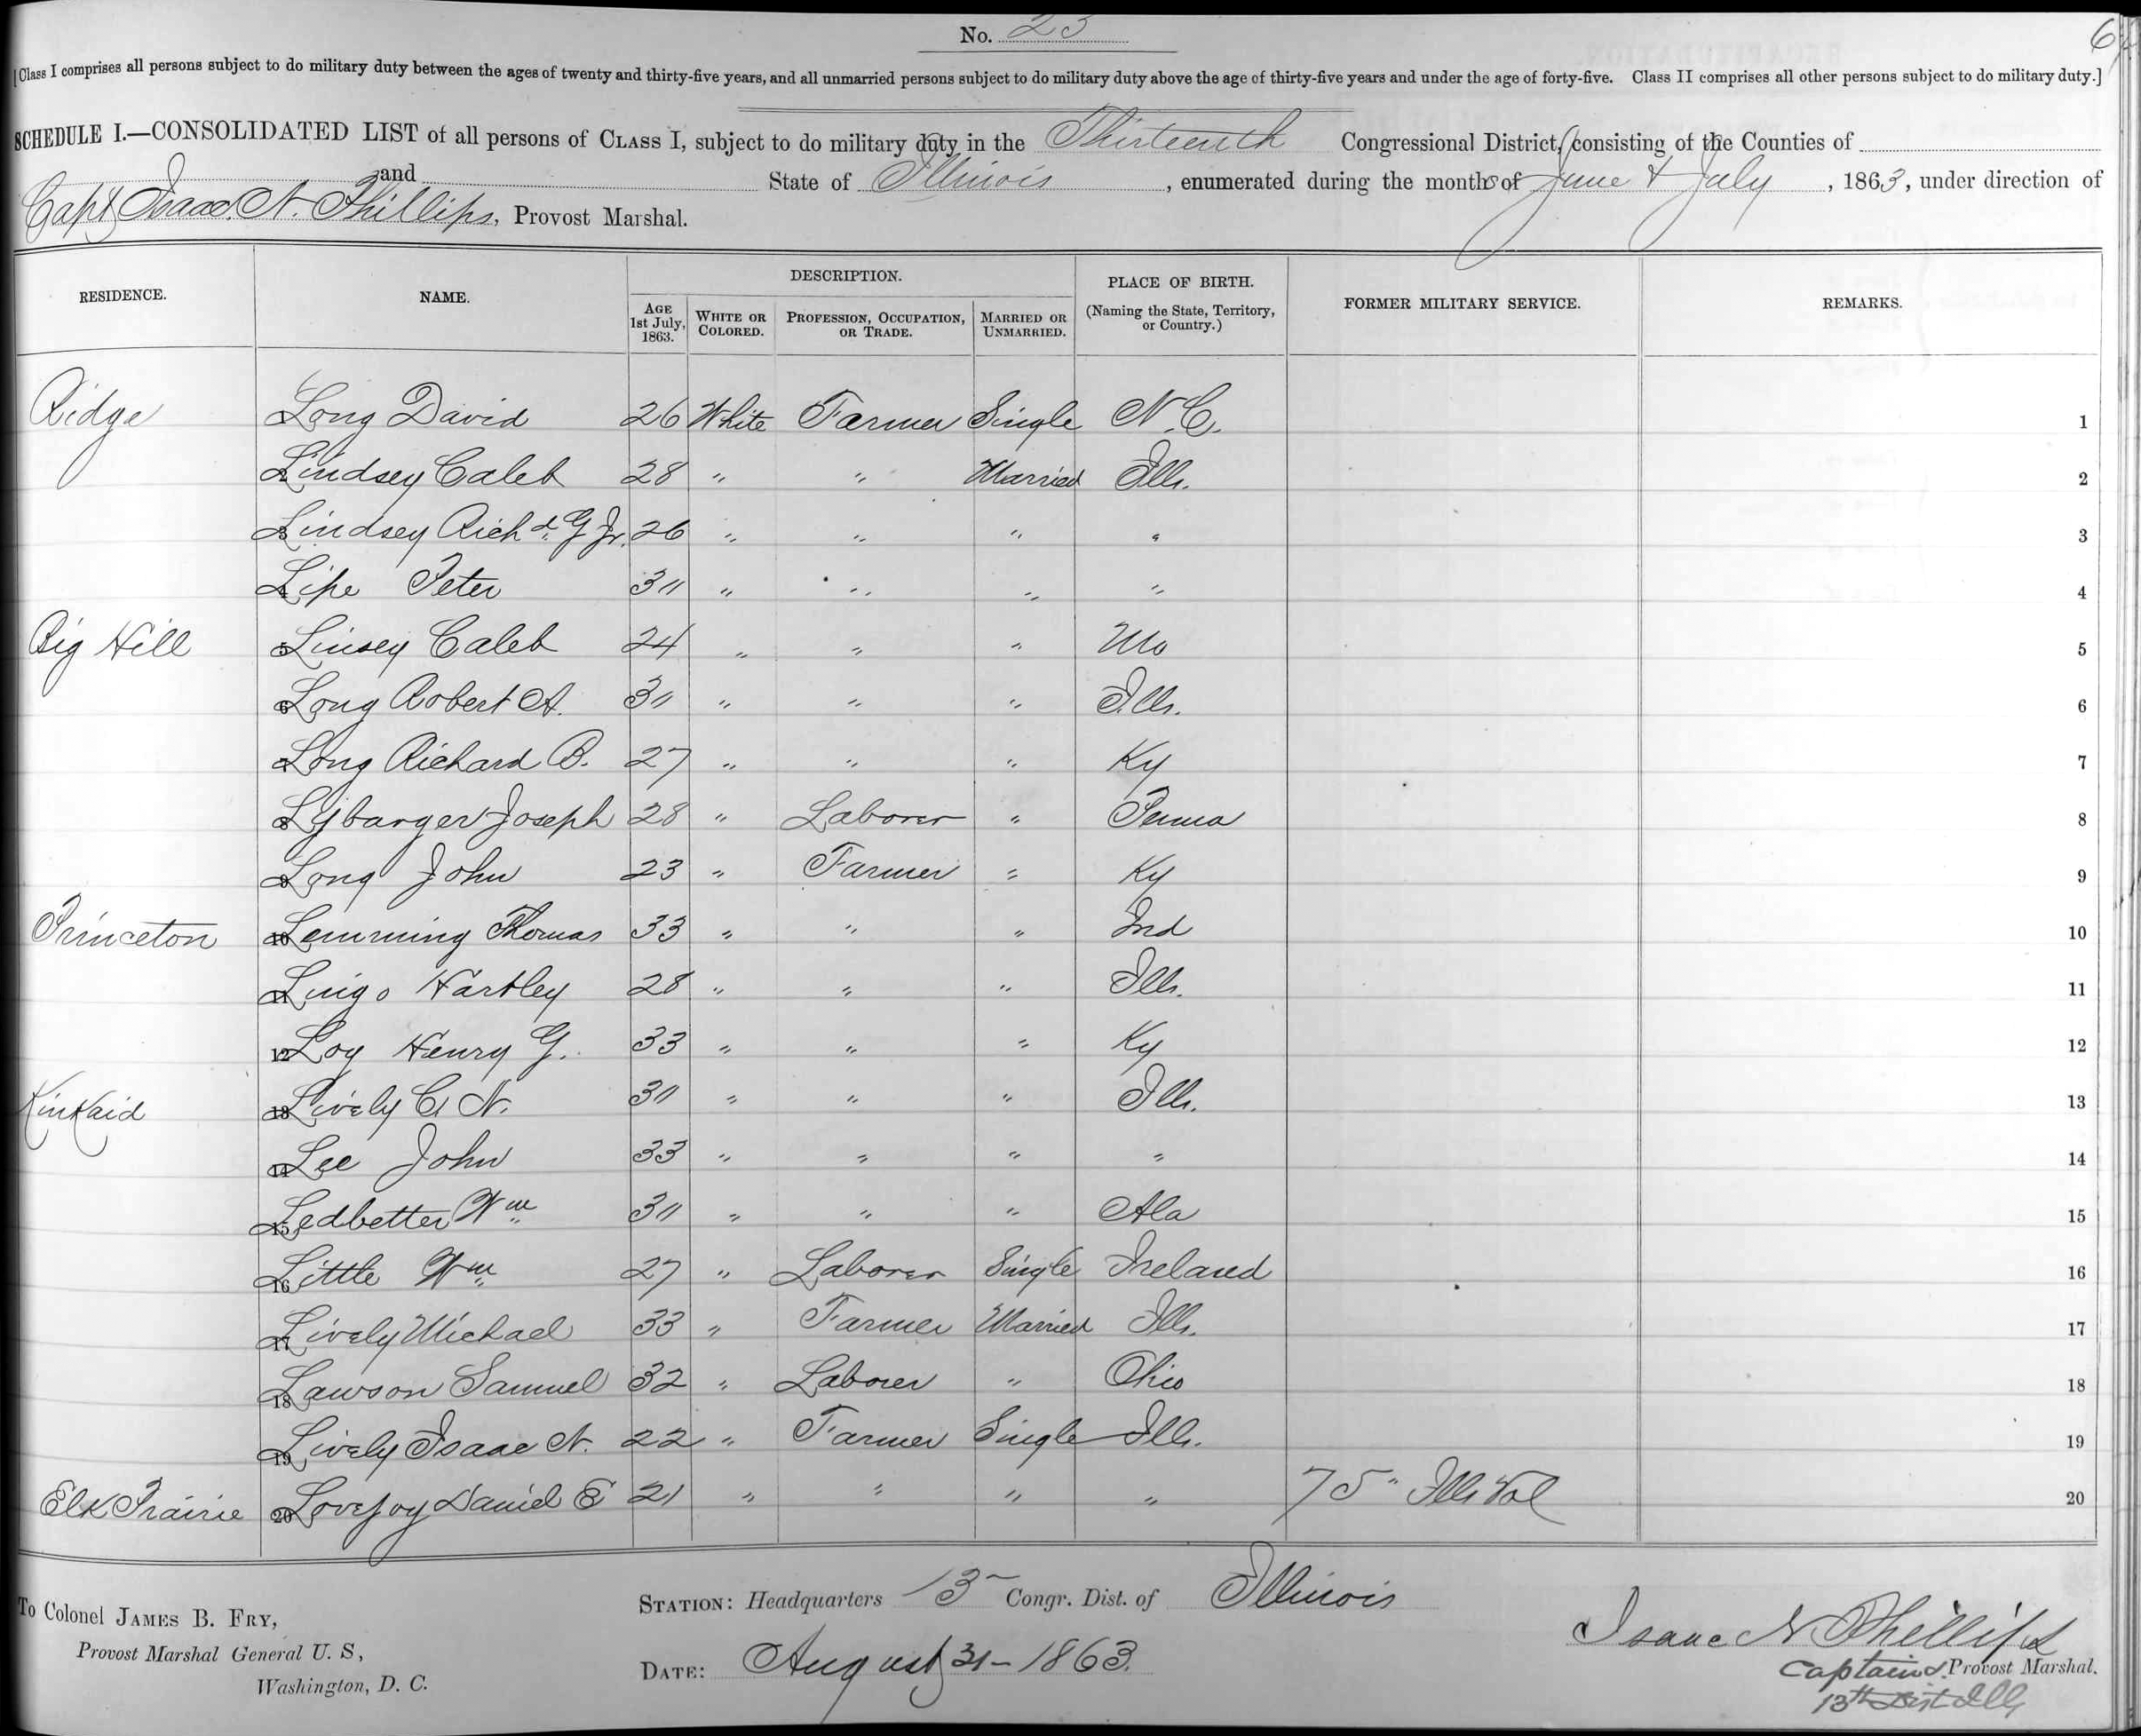 No. 23
6
[Class I comprises all persons subject to do military duty between the ages of twenty and thirty-five years, and all unmarried persons subject to do military duty above the age of thirty-five years and under the age of forty-five. Class II comprises all other persons subject to do military duty.]
SCHEDULE I.—CONSOLIDATED LIST of all persons of CLASS I, subject to do military duty in the Thirteenth Congressional District, (consisting of the Counties of
and State of Illinois, enumerated during the months of June & July, 1863, under direction of
Capt Isaac N. Phillips, Provost Marshal.
RESIDENCE. NAME. DESCRIPTION. PLACE OF BIRTH. (Naming the State, Territory, or Country.) FORMER MILITARY SERVICE. REMARKS.
AGE 1st July, 1863. WHITE OR COLORED. PROFESSION, OCCUPATION, OR TRADE. MARRIED OR UNMARRIED.
Ridge 1 Long David 26 White Farmer Single N.C. 1
2 Lindsey Caleb 28 " " Married Ills. 2
3 Lindsey Richd. G Jr. 26 " " " " 3
4 Lipe Peter 30 " " " " 4
Big Hill 5 Linsey Caleb 24 " " " Mo 5
6 Long Robert A. 30 " " " Ills. 6
7 Long Richard B. 27 " " " Ky 7
8 Lybarger Joseph 28 " Laborer " Penna 8
9 Long John 23 " Farmer " Ky 9
Princeton 10 Lemming Thomas 33 " " " Ind 10
11 Lingo Hartley 28 " " " Ills. 11
12 Loy Henry G. 33 " " " Ky 12
Kinkaid 13 Lively C N. 30 " " " Ills. 13
14 Lee John 33 " " " " 14
15 Ledbetter Wm 30 " " " Ala 15
16 Little Wm 27 " Laborer Single Ireland 16
17 Lively Michael 33 " Farmer Married Ills. 17
18 Lawson Samuel 32 " Laborer " Ohio 18
19 Lively Isaac N. 22 " Farmer Single Ills. 19
Elk Prairie 20 Lovejoy Daniel E 21 " " " " 75" Ills Vol 20
To Colonel JAMES B. FRY,
Provost Marshal General U. S,
Washington, D. C.
STATION: Headquarters 13 Congr. Dist. of Illinois
DATE: August 31 - 1863.
Isaac N Phillips
Captain & Provost Marshal.
13th Dist Ills